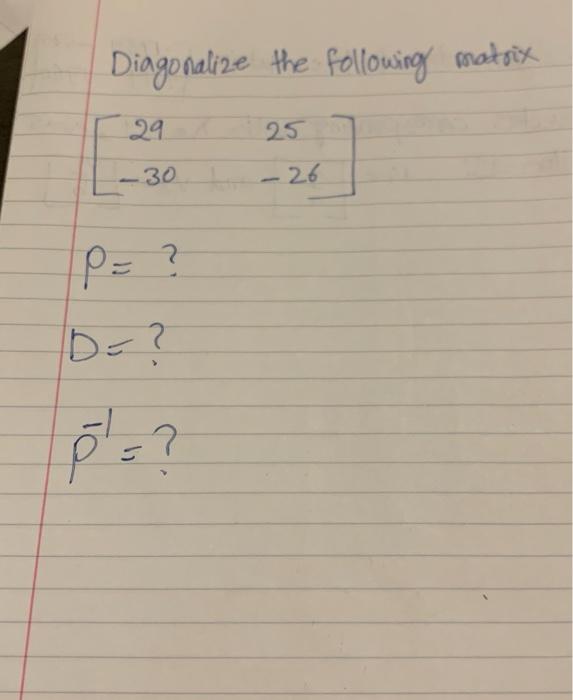 Diagonalize the following matrix
29 25
-30 -26
P = ?
D = ?
P⁻¹ = ?